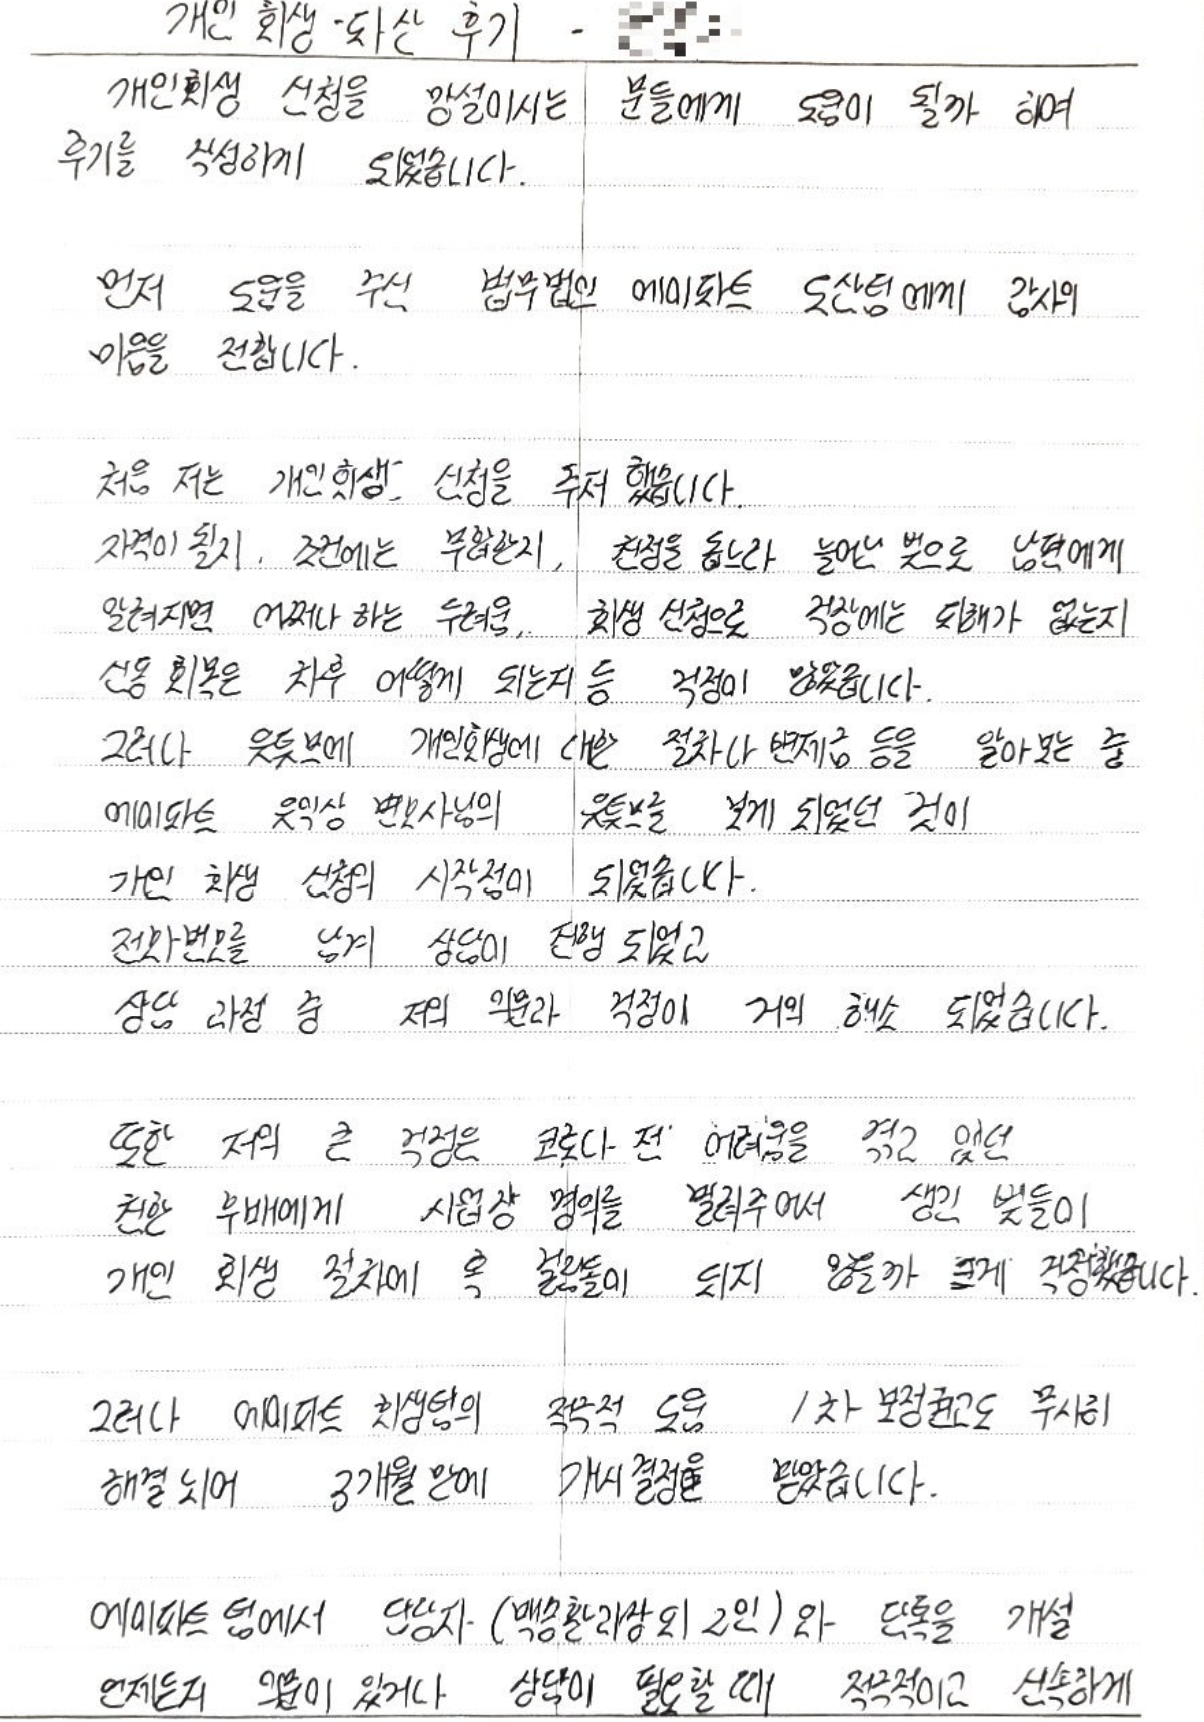 개인 회생·파산 후기 -
개인회생 신청을 망설이시는 분들에게 도움이 될까 하여
후기를 작성하게 되었습니다.
먼저 도움을 주신 법무법인 에이파트 도산팀에게 감사의
마음을 전합니다.
처음 저는 개인회생 신청을 주저 했습니다.
자격이 될지, 조건에는 부합한지, 친정을 돕느라 늘어난 빚으로 남편에게
알려지면 어쩌나 하는 두려움, 회생 신청으로 직장에는 피해가 없는지
신용 회복은 차후 어떻게 되는지 등 걱정이 많았습니다.
그러나 유튜브에 개인회생에 대한 절차나 변제금 등을 알아보는 중
에이파트 윤익상 변호사님의 유튜브를 보게 되었던 것이
개인 회생 신청의 시작점이 되었습니다.
전화번호를 남겨 상담이 진행 되었고
상담 과정 중 저의 의문과 걱정이 거의 해소 되었습니다.
또한 저의 큰 걱정은 코로나 전 어려움을 겪고 있던
친한 후배에게 사업장 명의를 빌려주어서 생긴 빚들이
개인 회생 절차에 혹 걸림돌이 되지 않을까 크게 걱정했습니다.
그러나 에이파트 회생팀의 적극적 도움 1차 보정권고도 무사히
해결 되어 3개월 만에 개시결정을 받았습니다.
에이파트 팀에서 담당자 (백승환과장 외 2인) 와 단톡을 개설
언제든지 의문이 있거나 상담이 필요할 때 적극적이고 신속하게